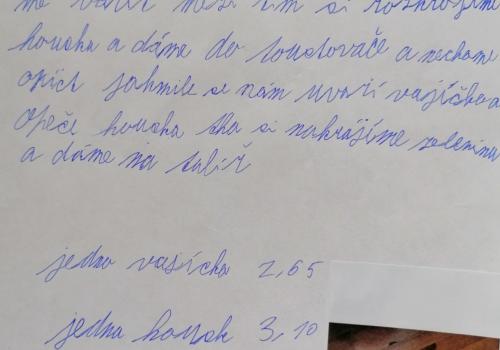 me vařit mezi tím si rozkrojíme
houska a dáme do toustovače a necháme
opíct jakmile se nám uvaří vajíčko a
opeče houska tka si nakrájíme zeleninu
a dáme na talíř
jedno vasícko 2,65
jedna housk 3,10